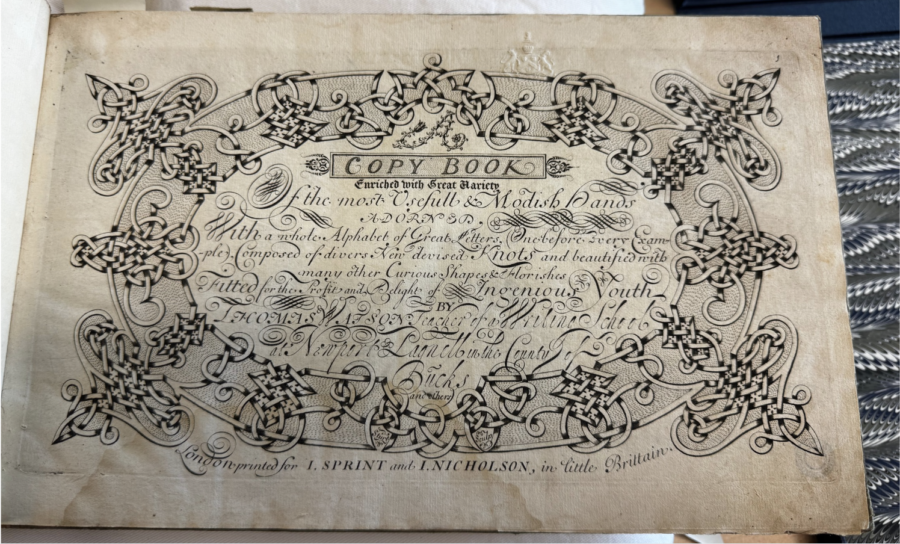 A
COPY BOOK
Enriched with Great Variety
Of the most Usefull & Modish Hands
ADORN'D
With a whole Alphabet of Great Letters, One before every Exam-
ple, Composed of divers New devised Knots and beautified with
many other Curious Shapes & Florishes
Fitted for the Profit and Delight of Ingenious Youth
BY
THOMAS WATSON Teacher of a Writing School
at Newport Pagnell in the County of
Bucks
and others
London printed for I. SPRINT and I. NICHOLSON, in little Brittain